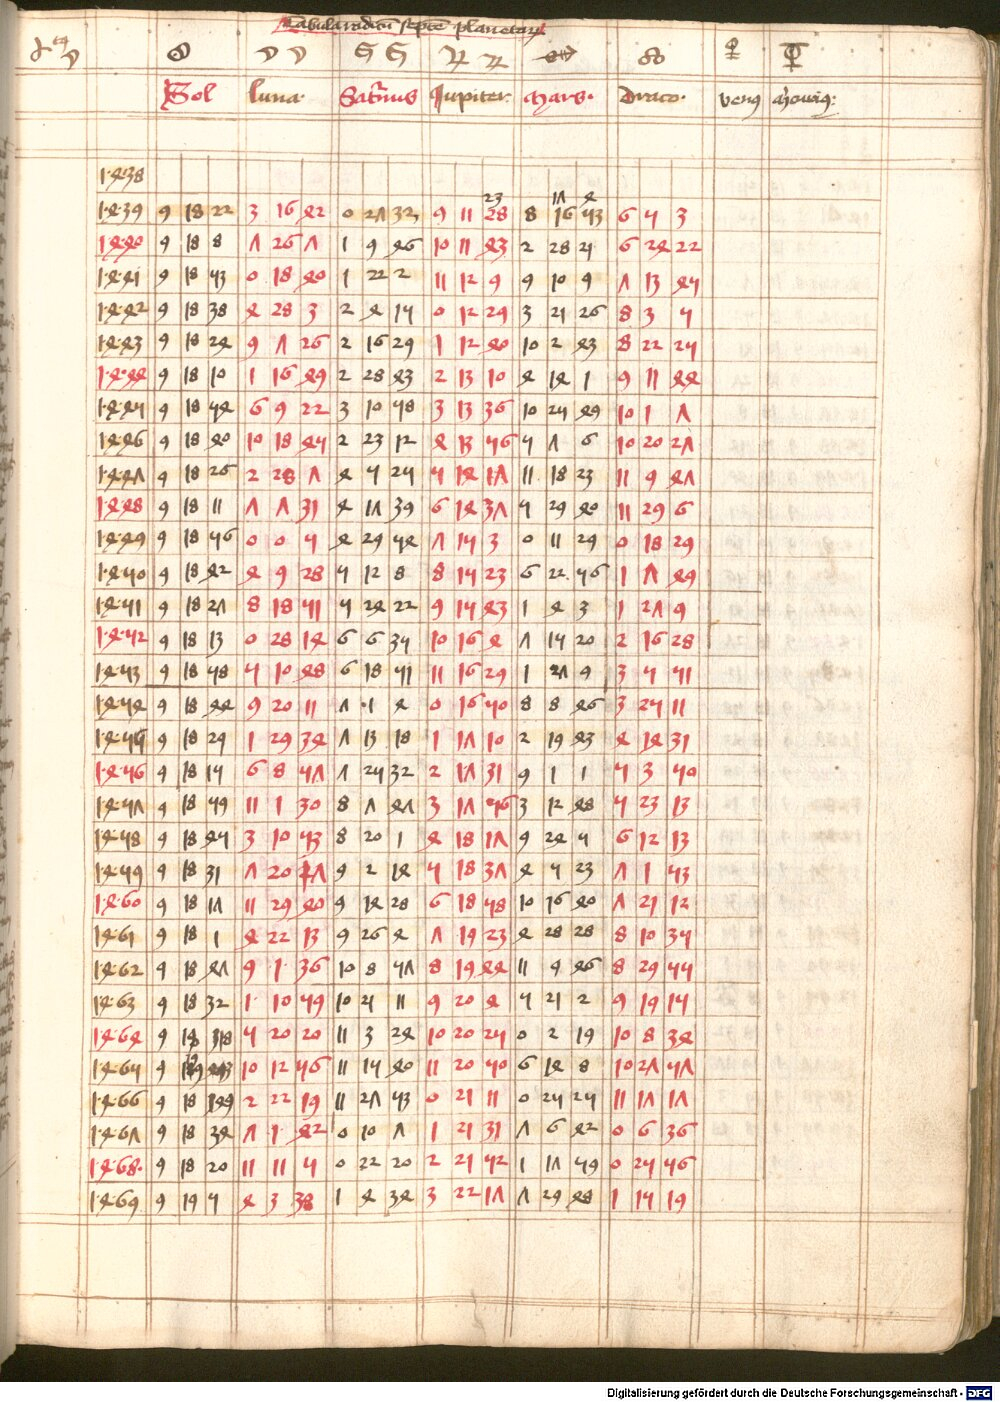 Tabula radicum septem planetarum
Sol luna Saturnus Jupiter Mars Draco venus
1438
23 17 4
1439 9 18 22 3 16 42 0 27 32 9 11 28 8 16 53 6 5 3
1440 9 18 8 7 26 7 1 9 46 10 11 43 2 28 21 6 24 22
1441 9 18 53 0 18 40 1 22 2 11 12 9 9 10 9 7 13 45
1442 9 18 38 4 28 3 2 4 15 0 12 29 3 21 26 8 3 5
1443 9 18 24 9 7 26 2 16 29 1 12 40 10 2 43 8 22 25
1444 9 18 10 1 16 49 2 28 43 2 13 10 4 14 1 9 11 44
1445 9 18 54 6 9 22 3 10 58 3 13 36 10 25 49 10 1 7
1446 9 18 40 10 18 45 2 23 12 4 13 56 5 7 6 10 20 27
1447 9 18 26 2 28 7 4 5 25 5 14 17 11 18 23 11 9 47
1448 9 18 11 7 7 31 4 17 39 6 14 37 5 29 40 11 29 6
1449 9 18 56 0 0 5 4 29 54 7 15 3 0 11 29 0 18 29
1450 9 18 42 4 9 28 5 12 8 8 15 23 6 22 56 1 7 49
1451 9 18 27 8 18 51 5 24 22 9 15 43 1 4 3 1 27 9
1452 9 18 13 0 28 14 6 6 35 10 16 4 7 15 20 2 16 28
1453 9 18 58 5 10 48 6 18 51 11 16 29 1 27 9 3 5 51
1454 9 18 44 9 20 11 7 1 4 0 16 50 8 8 46 3 25 11
1455 9 18 29 1 29 34 7 13 18 1 17 10 2 19 43 4 14 31
1456 9 18 15 6 8 57 7 25 32 2 17 31 9 1 1 5 3 50
1457 9 18 59 11 1 30 8 7 47 3 17 56 3 12 48 5 23 13
1458 9 18 45 3 10 53 8 20 1 4 18 17 9 24 5 6 12 13
1459 9 18 31 7 20 17 9 2 14 5 18 37 4 5 23 7 1 53
1460 9 18 17 11 29 40 9 14 28 6 18 58 10 16 40 7 21 12
1461 9 18 1 4 22 13 9 26 4 7 19 23 4 28 28 8 10 35
1462 9 18 47 9 1 36 10 8 57 8 19 44 11 9 46 8 29 55
1463 9 18 32 1 10 59 10 21 11 9 20 4 5 21 2 9 19 15
1464 9 18 5 20 20 11 3 24 10 20 25 0 2 19 10 8 34
1465 9 10 12 56 11 15 40 11 20 50 6 14 8 10 27 57
1466 9 18 2 22 19 11 27 53 0 21 11 0 25 25 11 17 17
1467 9 18 34 7 1 42 0 10 7 1 21 31 7 6 42 0 6 36
1468 9 18 20 11 11 5 0 22 20 2 21 52 1 17 59 0 25 56
1469 9 19 5 4 3 38 1 4 34 3 22 17 7 29 48 1 15 19
Digitalisierung gefördert durch die Deutsche Forschungsgemeinschaft - DFG